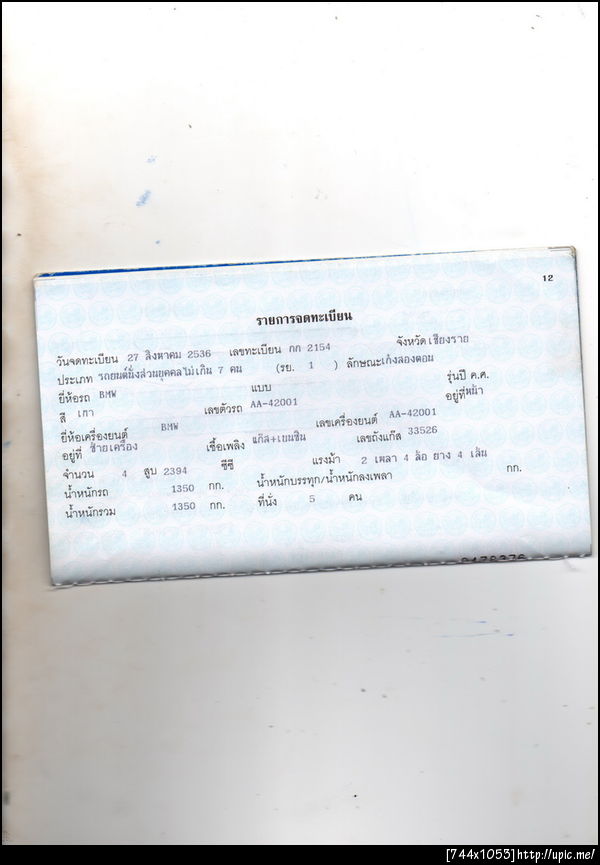 12
รายการจดทะเบียน
วันจดทะเบียน 27 สิงหาคม 2536 เลขทะเบียน กก 2154 จังหวัด เชียงราย
ประเภท รถยนต์นั่งส่วนบุคคลไม่เกิน 7 คน (รย. 1 ) ลักษณะ เก๋งสองตอน
ยี่ห้อรถ BMW แบบ รุ่นปี ค.ศ.
สี เทา เลขตัวรถ AA-42001 อยู่ที่ หน้า
ยี่ห้อเครื่องยนต์ BMW เลขเครื่องยนต์ AA-42001
อยู่ที่ ซ้ายเครื่อง เชื้อเพลิง แก๊ส+เบนซิน เลขถังแก๊ส 33526
จำนวน 4 สูบ 2394 ซีซี แรงม้า 2 เพลา 4 ล้อ ยาง 4 เส้น
น้ำหนักรถ 1350 กก. น้ำหนักบรรทุก/น้ำหนักลงเพลา กก.
น้ำหนักรวม 1350 กก. ที่นั่ง 5 คน
[744x1053]http://upic.me/